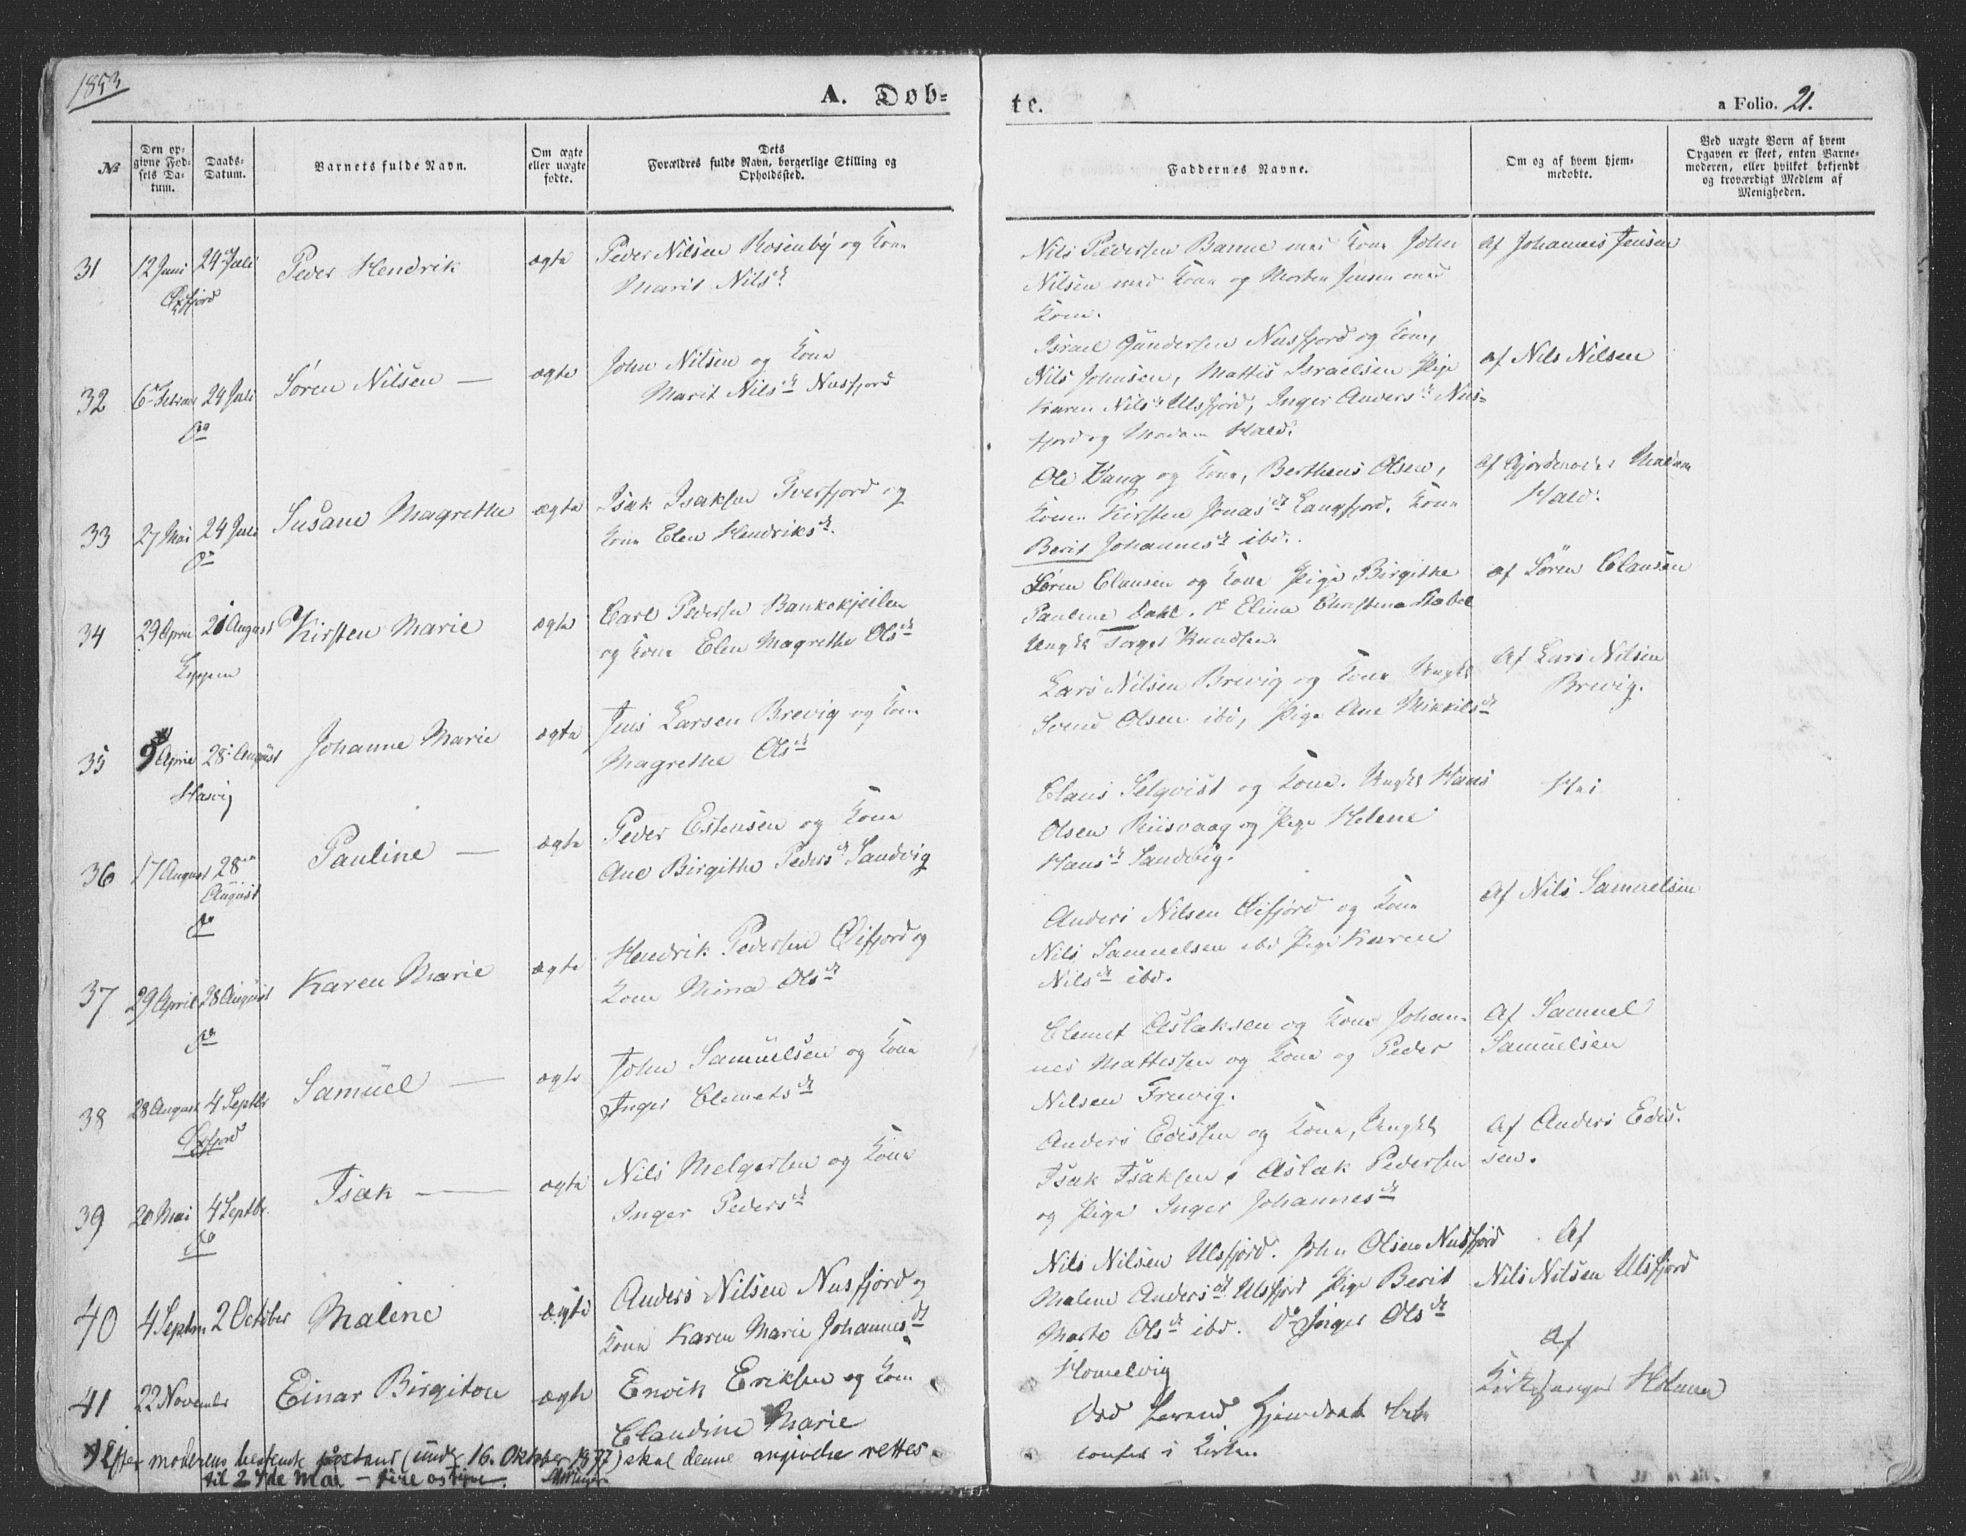 1853
A. Døb-
te.
a Folio. 21.
No
Den op-
givne Fød-
sels Da-
tum.
Daabs-
Datum.
Barnets fulde Navn.
Om ægte
eller uægte
fødte.
Dets
Forældres fulde Navn, borgerlige Stilling og
Opholdssted.
Faddernes Navne.
Om og af hvem hjem-
medøbte.
Ved uægte Børn af hvem
Opgaven er skeet, enten Barne-
moderen, eller hvilket bekjendt
og troværdigt Medlem af
Menigheden.
31 12 Juni 24 Juli Peder Hendrik ægte Peder Nilsen Rosenby og Kone
Marit Nilsd.
Øxfjord
Nils Pedersen Banne med Kone John
Nilsen med Kone og Morten Jensen med
Kone.
af Johannes Jensen
32 6 Februar 24 Juli Søren Nilsen — ægte John Nilsen og Kone
Marit Nilsd Nusfjord
do
Israel Gundersen Nusfjord og Kone,
Nils Johnsen, Mattis Israelsen Pige
Karen Nilsd Ulsfjord, Inger Andersd Nus-
fjord og Madam Hald.
af Nils Nilsen
33 27 Mai 24 Juli Susane Magrethe ægte Isak Isaksen Tverfjord og
Kone Elen Hendriksd.
do
Ole Vang og Kone, Bertheus Olsen,
Konen Kirsten Jonasd Langfjord. Kone
Berit Johannesd ibd.
af Gjordemoder Madam
Hald.
34 29 April 21 August Kirsten Marie ægte Carl Pedersen Bankekjeilen
og Kone Elen Magrethe Olsd
Loppen
Søren Clausen og Kone Pige Birgithe
Pauline Dahl. Elina Christina Stabel
Ungkl Torger Knudsen.
af Søren Clausen
35 9 April 28 August Johanne Marie ægte Jens Larsen Brevig og Kone
Magrethe Olsd
Hasvig
Lars Nilsen Brevig og Kone Ungkl
Svend Olsen ibd, Pige Ane Mikkilsd
Af Lars Nilsen
Brevig.
36 17 August 28
August
Pauline — ægte Peder Estensen og Kone
Ane Birgithe Pedersd Sandvig
do
Claus Selqvist og Kone. Ungkl Hans
Olsen Riisvaag og Pige Helene
Hansd Sandvig.
Nei
37 29 April 28 August Karen Marie ægte Hendrik Pedersen Øifjord og
Kone Mina Olsd
do
Anders Nilsen Øifjord og Kone
Nils Samuelsen ibd Pige Karen
Nilsd ibd.
Af Nils Samuelsen
38 28 August 4 Septbr Samuel — ægte John Samuelsen og Kone
Inger Clemetsd
Øxfjord
Clemet Aslaksen og Kone Johan-
nes Mattissen og Kone og Peder
Nilsen Freuvig.
Af Samuel
Samuelsen
39 20 Mai 4 Septbr. Isak — ægte Nils Melgersen og Kone
Inger Pedersd
do
Anders Edissen og Kone, Ungkl
Isak Isaksen, Aslak Pedersen
og Pige Inger Johannesd
Af Anders Edis-
sen.
40 4 Septbr 2 October Malene ægte Anders Nilsen Nusfjord og
Kone Karen Marie Johannesd
Nils Nilsen Ulsfjord. John Olsen Nusfjord
Malene Andersd Ulsfjord Pige Berit
Marte Olsd ibd. do Inger Olsd
Homelvig
Af
Nils Nilsen Ulsfjord
41 22 November Einar Birgiton ægte Envik Eriksen og Kone
Claudine Marie
Død førend Hjemdaab blev
confer i Kirken
af
Kirkesanger Holmen
Efter moderens bestemte påstand (under 16. Oktober 1877) skal denne angivelse rettes
til 24de Mai – fire og tyve.